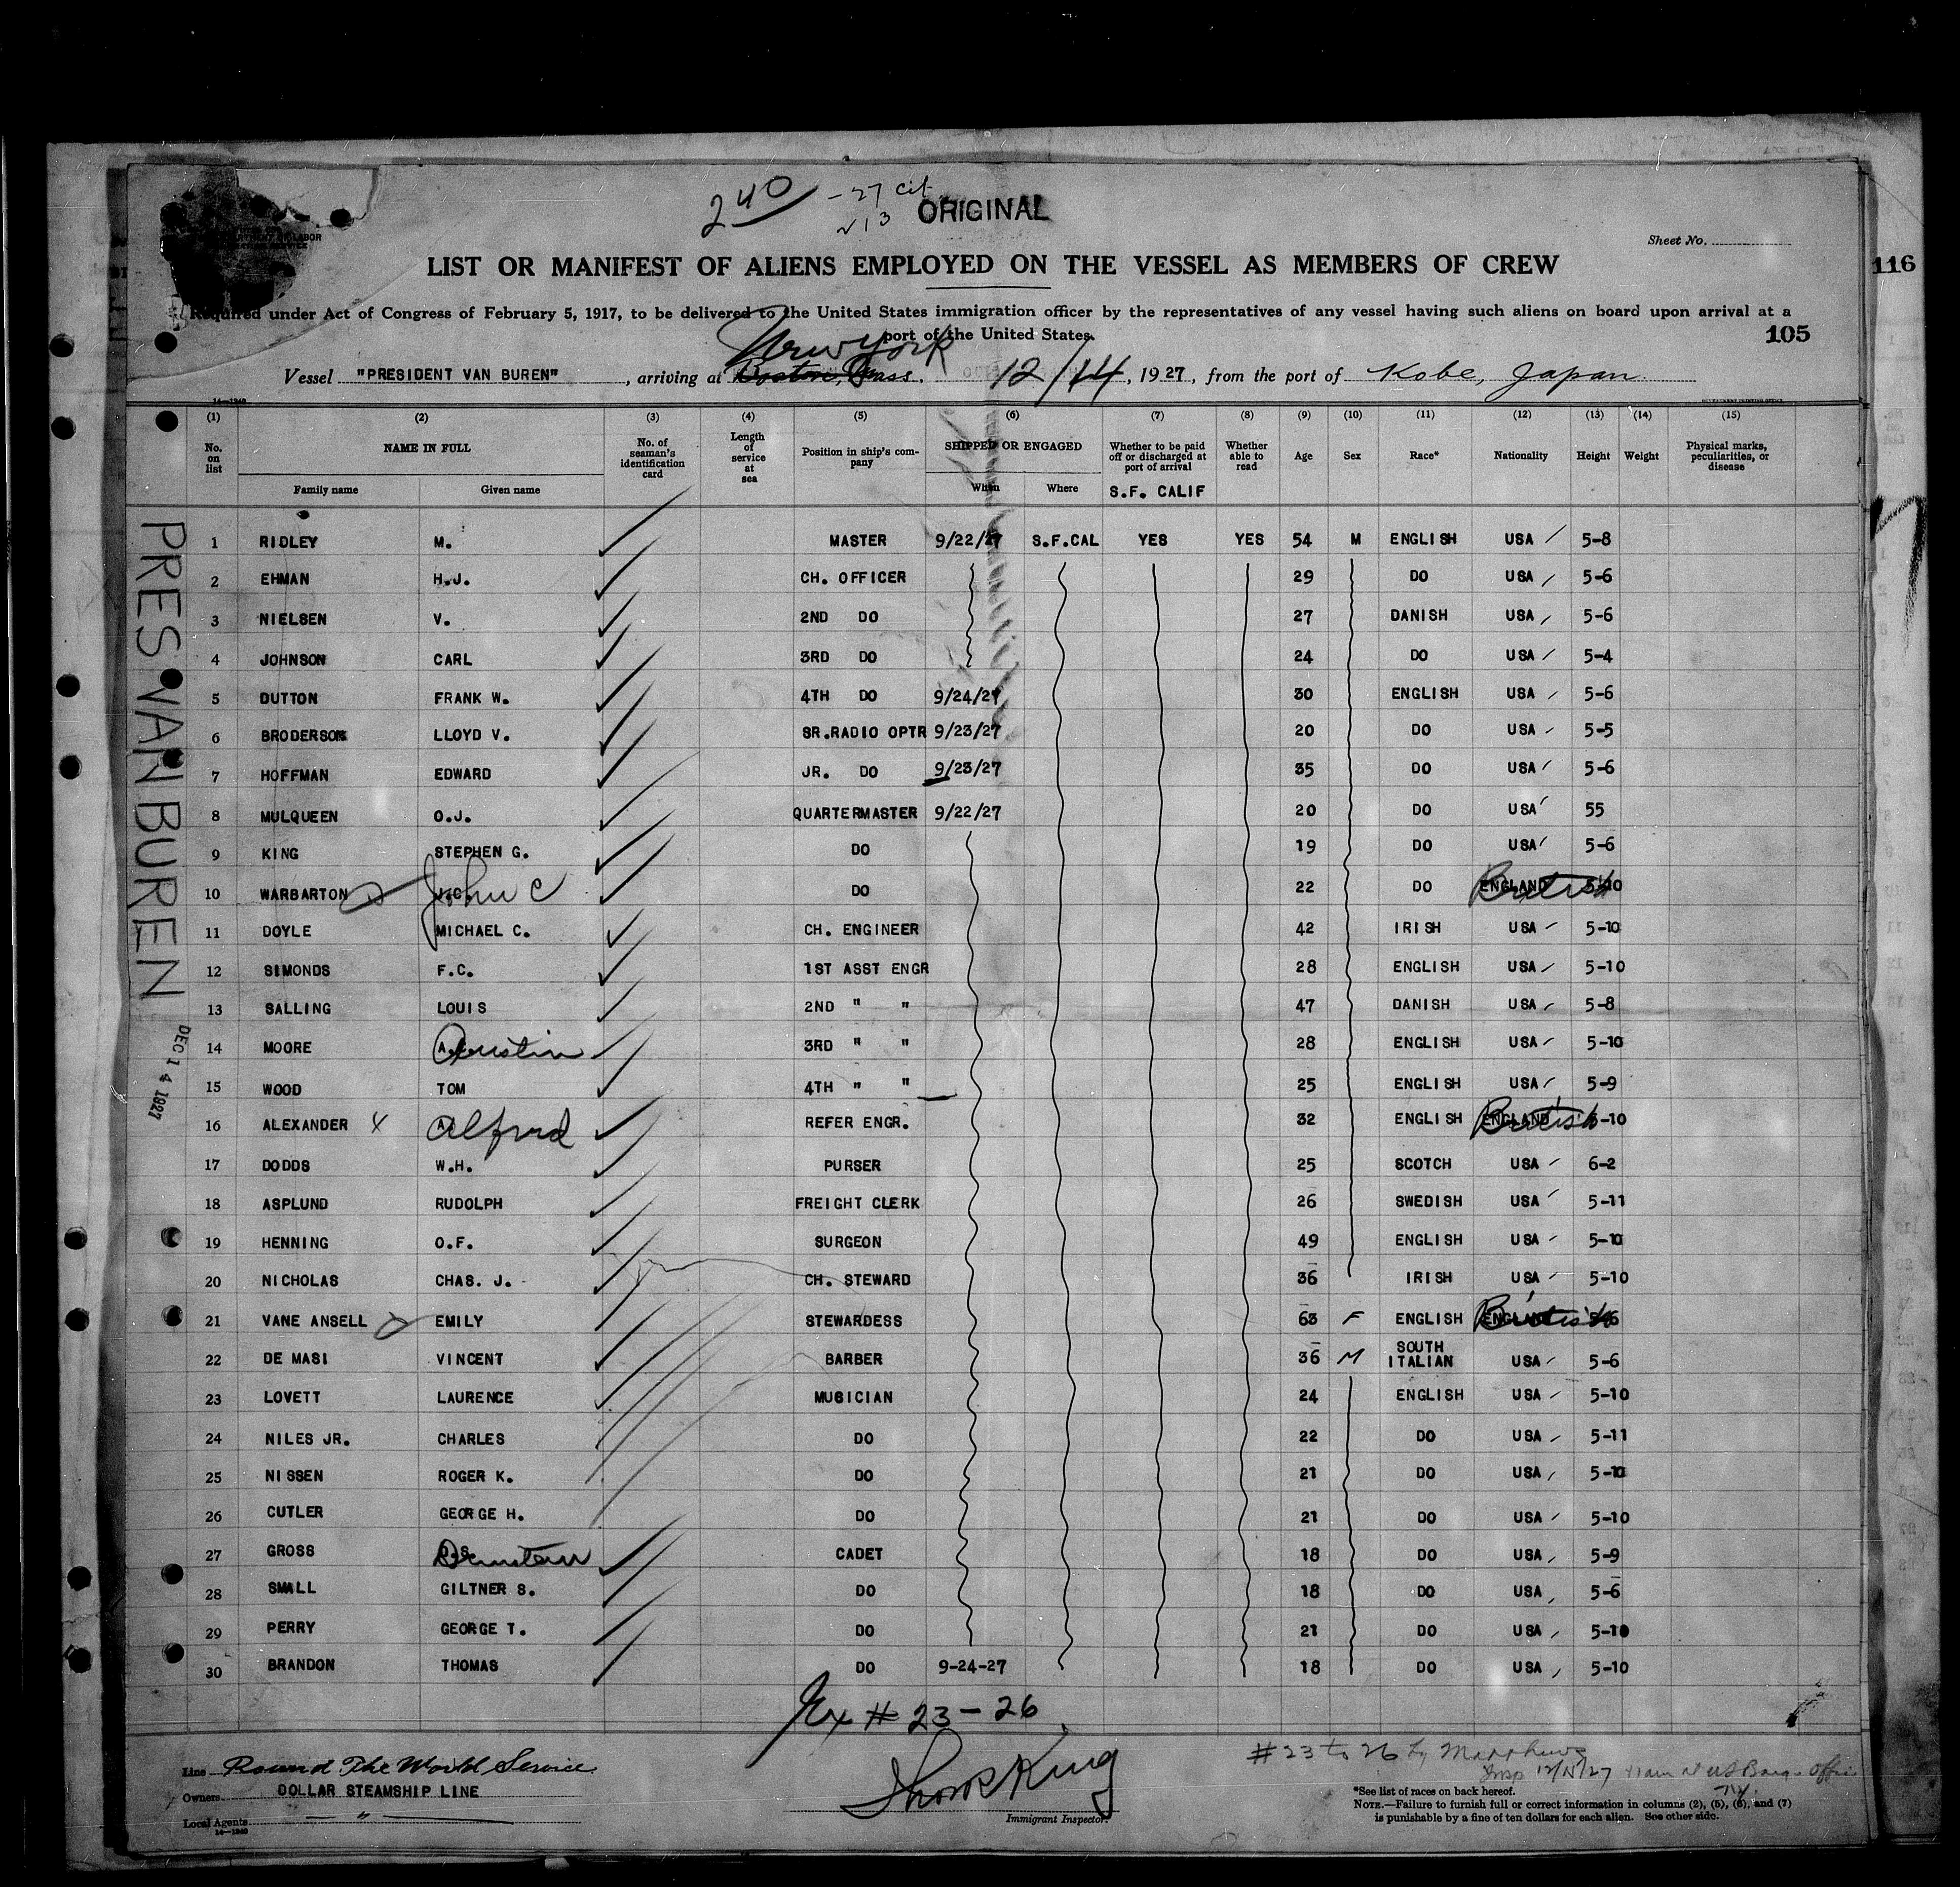 240 - 27 cit.
√13
ORIGINAL
Sheet No.
LIST OR MANIFEST OF ALIENS EMPLOYED ON THE VESSEL AS MEMBERS OF CREW
116
Required under Act of Congress of February 5, 1917, to be delivered to the United States immigration officer by the representatives of any vessel having such aliens on board upon arrival at a
port of the United States.
105
New York
Vessel "PRESIDENT VAN BUREN", arriving at Boston, Mass. 12/14, 1927, from the port of Kobe, Japan
14-1240
(1) (2) (3) (4) (5) (6) (7) (8) (9) (10) (11) (12) (13) (14) (15)
No. on list NAME IN FULL No. of seaman's identification card Length of service at sea Position in ship's company SHIPPED OR ENGAGED Whether to be paid off or discharged at port of arrival Whether able to read Age Sex Race* Nationality Height Weight Physical marks, peculiarities, or disease
Family name Given name When Where S.F. CALIF
PRES VAN BUREN
DEC 14 1927
1 RIDLEY M. MASTER 9/22/27 S.F.CAL YES YES 54 M ENGLISH USA 5-8
2 EHMAN H.J. CH. OFFICER 29 DO USA 5-6
3 NIELSEN V. 2ND DO 27 DANISH USA 5-6
4 JOHNSON CARL 3RD DO 24 DO USA 5-4
5 DUTTON FRANK W. 4TH DO 9/24/27 30 ENGLISH USA 5-6
6 BRODERSON LLOYD V. SR.RADIO OPTR 9/23/27 20 DO USA 5-5
7 HOFFMAN EDWARD JR. DO 9/23/27 35 DO USA 5-6
8 MULQUEEN O.J. QUARTERMASTER 9/22/27 20 DO USA 55
9 KING STEPHEN G. DO 19 DO USA 5-6
10 WARBARTON John C DO 22 DO ENGLAND British 5-10
11 DOYLE MICHAEL C. CH. ENGINEER 42 IRISH USA 5-10
12 SIMONDS F.C. 1ST ASST ENGR 28 ENGLISH USA 5-10
13 SALLING LOUIS 2ND " " 47 DANISH USA 5-8
14 MOORE Austin 3RD " " 28 ENGLISH USA 5-10
15 WOOD TOM 4TH " " 25 ENGLISH USA 5-9
16 ALEXANDER x Alfred REFER ENGR. 32 ENGLISH ENGLAND British 5-10
17 DODDS W.H. PURSER 25 SCOTCH USA 6-2
18 ASPLUND RUDOLPH FREIGHT CLERK 26 SWEDISH USA 5-11
19 HENNING O.F. SURGEON 49 ENGLISH USA 5-10
20 NICHOLAS CHAS. J. CH. STEWARD 36 IRISH USA 5-10
21 VANE ANSELL EMILY STEWARDESS 63 F ENGLISH ENGLAND British 5-6
22 DE MASI VINCENT BARBER 36 M SOUTH ITALIAN USA 5-6
23 LOVETT LAURENCE MUSICIAN 24 ENGLISH USA 5-10
24 NILES JR. CHARLES DO 22 DO USA 5-11
25 NISSEN ROGER K. DO 21 DO USA 5-10
26 CUTLER GEORGE H. DO 21 DO USA 5-10
27 GROSS CADET 18 DO USA 5-9
28 SMALL GILTNER S. DO 18 DO USA 5-6
29 PERRY GEORGE T. DO 21 DO USA 5-10
30 BRANDON THOMAS DO 9-24-27 18 DO USA 5-10
Ex # 23 - 26
Line Round The World Service
Owners DOLLAR STEAMSHIP LINE
Local Agents "
14-1240
King
Immigrant Inspector.
# 23 to 26 by Matthews
Insp 12/15/27 11am at US Barge Office
NY.
*See list of races on back hereof.
NOTE.—Failure to furnish full or correct information in columns (2), (5), (6), and (7)
is punishable by a fine of ten dollars for each alien. See other side.